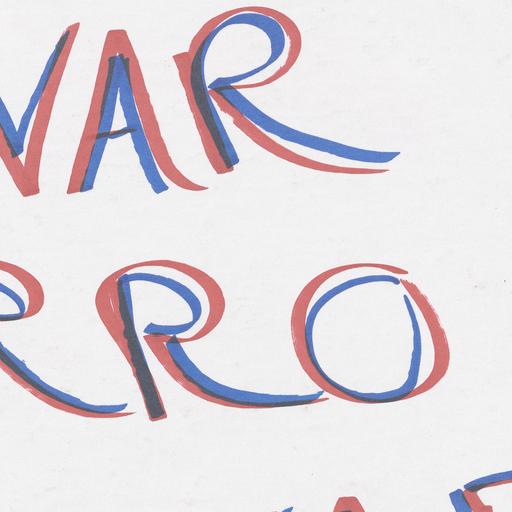 VAR
RRO